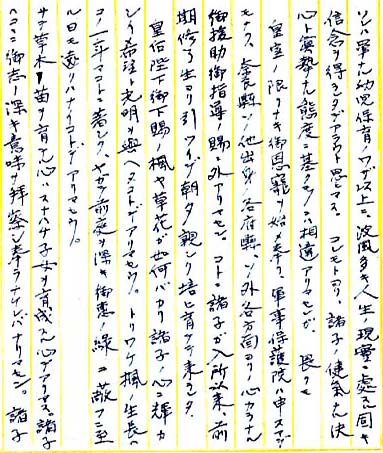 ソハ單ナル幼児保育ノワザ以上ニ、波風多キ人生ノ現實ニ處スル固キ
信念ヲ得ラレタデアラウト思ヒマス。コレモトヨリ、諸子ノ健氣ナル決
心ト真摯ナル態度ニ基クモノニ相違アリマセンガ、畏クモ
皇室ノ限リナキ御恩寵ヲ始メ奉リ、軍事保護院ハ申スマデ
モナク、兵縣ソノ他出身ノ各府縣、ソノ外各方面ヨリノ心カラナル
御援助御指導ノ賜ニ外アリマセン。コトニ諸子ガ入所以来、前
期修了生ヨリ引ツイデ朝夕親シク培ヒ育テテ来ラレタ
皇后陛下御下賜ノ楓ヤ草花ガ如何バカリ諸子ノ心ニ輝カ
シイ希望ト光明ヲ與ヘタコトデアリマセウ。トリワケ楓ノ生長ハ
コノ一年マコトニ著シク、ヤガテ前庭ヲ深キ御恵ノ緑ニ蔽フニ至
ル日モ遠クハナイコトデアリマセウ。
サテ草木ノ苗ヲ育テル心ハスナハチ子女ヲ育成スル心デアリマス。諸子
ハココニ御志ノ深キ意味ヲ拝察シ奉ラナケレバナリマセン。諸子